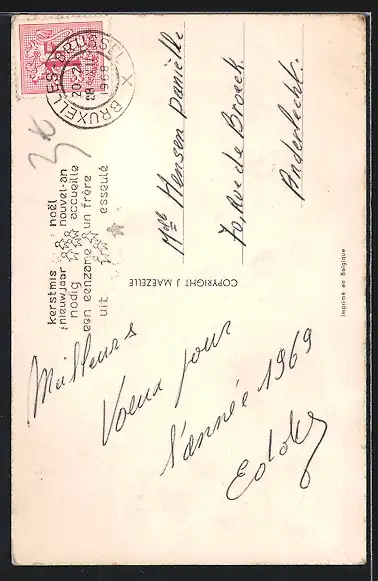 BRUXELLES X BRUSSEL X
20-21
28 XII
1968
1F
kerstmis noël
nieuwjaar nouvel-an
nodig accueille
een eenzame un frère
uit esseulé
Melle Hensen Danielle
70, Rue de Broeck.
Anderlecht.
COPYRIGHT J MAEZELLE
Imprimé en Belgique
Meilleurs
Voeux pour
l'année 1969